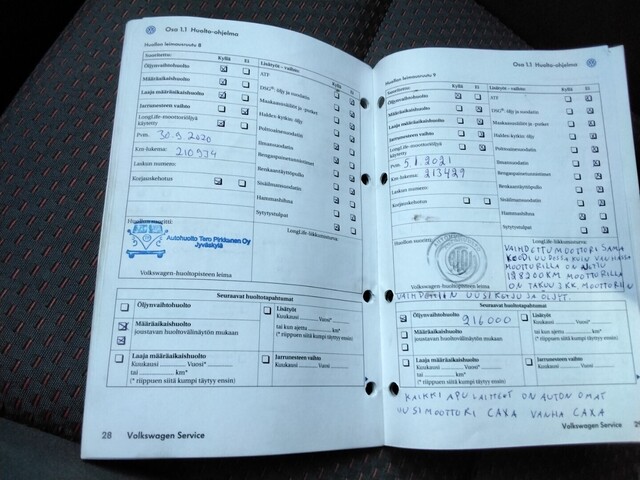 Osa 1.1 Huolto-ohjelma
Huollon leimausruutu 8
Suoritettu:
Kyllä Ei
Öljynvaihtohuolto
Määräaikaishuolto
Laaja määräaikaishuolto
Jarrunesteen vaihto
LongLife-moottoriöljyä
käytetty
Pvm. 30.9.2020
Km-lukema: 210934
Laskun numero:
Korjauskehotus
Lisätyöt - vaihto:
Kyllä Ei
ATF
DSG®-öljy ja suodatin
Haldex-kytkin: öljy
Polttoainesuodatin
Ilmansuodatin
Hengityspainetunnistin
Renkaantäyttöpullo
Sisäilmansuodatin
Hammashihna
Sytytystulpat
Huollon suoritti:
Autohuolto Tero Pirkkanen Oy
Jyväskylä
LongLife-liikkuvuusturva
Volkswagen-huoltopisteen leima
Seuraavat huoltotapahtumat
Öljynvaihtohuolto
Määräaikaishuolto
joustavan huoltovälinäytön mukaan
Laaja määräaikaishuolto
Kuukausi Vuosi*
tai km*
(* riippuen siitä kumpi täytyy ensin)
Lisätyöt
Kuukausi Vuosi*
tai kun ajettu km*
(* riippuen siitä kumpi täytyy ensin)
Jarrunesteen vaihto
Kuukausi Vuosi*
28 Volkswagen Service
Osa 1.1 Huolto-ohjelma
Huollon leimausruutu 9
Kyllä Ei
Öljynvaihtohuolto
Määräaikaishuolto
Laaja määräaikaishuolto
Jarrunesteen vaihto
LongLife-moottoriöljyä
käytetty
Pvm. 5.1.2021
Km-lukema: 213429
Laskun numero:
Korjauskehotus
Lisätyöt - vaihto:
Kyllä Ei
ATF
DSG®-öljy ja suodatin
Haldex-kytkin: öljy
Polttoainesuodatin
Ilmansuodatin
Renkaantäyttöpullo
Sisäilmansuodatin
Hammashihna
Sytytystulpat
Huollon suoritti:
LongLife-liikkuvuusturva
VAIHDETTU MOOTTORI SAMA
KOODI UUDESSA KUIN VANHASSA
MOOTTORILLA ON AJETTU
128200KM MOOTTORILLA
ON TAKUU 3 KK MOOTTORIIN
Volkswagen-huoltopisteen leima
VAIHDETAAN UUSI KETJU JA ÖLJYT.
Seuraavat huoltotapahtumat
Öljynvaihtohuolto 216000
Määräaikaishuolto
joustavan huoltovälinäytön mukaan
Laaja määräaikaishuolto
Kuukausi Vuosi*
tai km*
(* riippuen siitä kumpi täytyy ensin)
Lisätyöt
Kuukausi Vuosi*
tai kun ajettu km*
(* riippuen siitä kumpi täytyy ensin)
Jarrunesteen vaihto
Kuukausi Vuosi*
KAIKKI APULAITTEET ON AUTON OMAT
UUSI MOOTTORI CAXA VANHA CAXA
Volkswagen Service